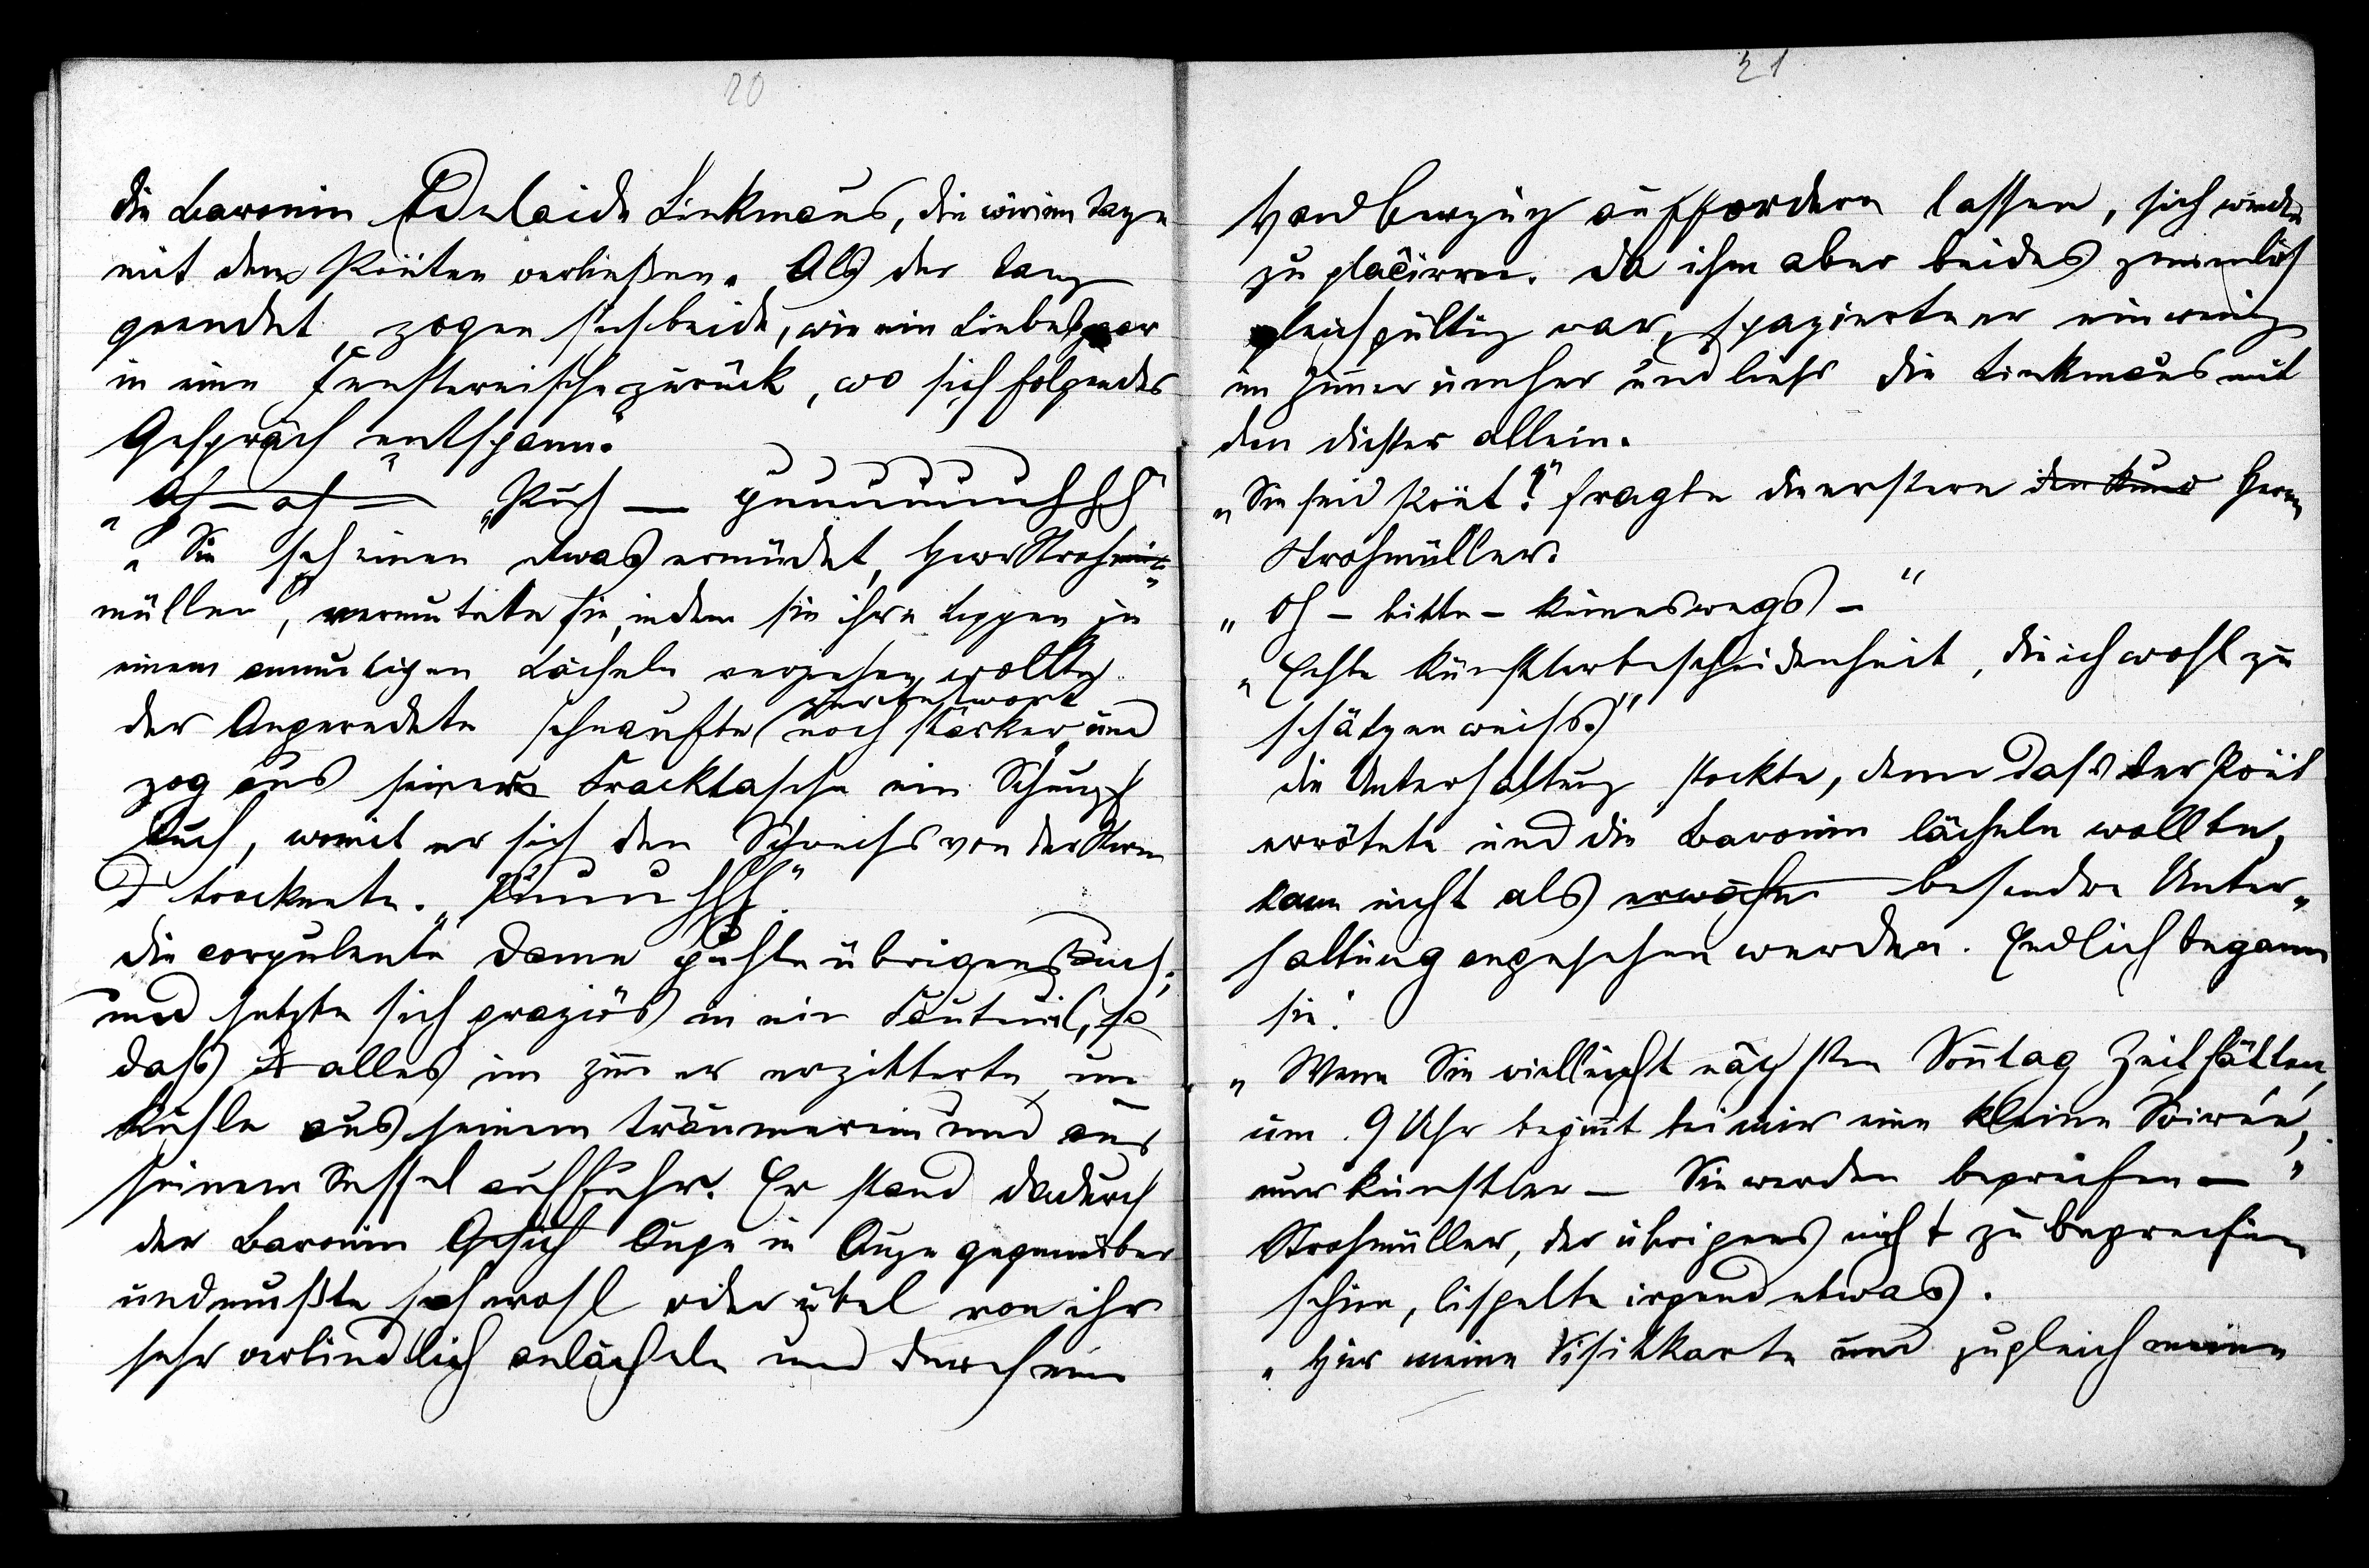 20
die Baronin Adelaide Linkmaus, die wir im Tanze
mit dem Poëten verließen. Als der Tanz
geendet, zogen sich beide, wie ein Liebespaar
in eine Fensternische zurück, wo sich folgendes
Gespräch entspann:
„Ach – ach – „Puh — puuuuuuhhh"
„Sie scheinen etwas ermüdet, Herr Stroh
müller", vermutete sie, indem sie ihre Lippen zu
einem anmutigen Lächeln verziehen wollte.
der Angeredete schnaufte zur Antwort noch stärker und
zog aus seiner Fracktasche ein Schnupf
tuch, womit er sich den Schweiss von der Stirn
trocknete. „Puuuuhhh."
die corpulente Dame puhte übrigens auch,
und setzte sich graziös in ein Fauteuil, so
dass alles im Zimmer erzitterte und
Kuhle aus seinem träumerein und aus
seinem Sessel auffuhr. Er stand dadurch
der Baronin Gesich Auge in Auge gegenüber
und mußte sich wohl oder übel von ihr
sehr verbindlich anlächeln und durch eine
21
Handbewegung auffordern lassen, sich wieder
zu placieren. Da ihm aber beides ziemlich
gleichgültig war, spazierte er ein wenig
im Zimmer umher und liess die Linkmaus mit
den dichter allein.
„Sie sind Poët?" fragte die erstere Herrn
Strohmüller.
„Oh – bitte – keineswegs –"
„Echte Künstlerbescheidenheit, die ich wohl zu
schätzen weiss."
die Unterhaltung stockte, denn dass der Poët
errötete und die Baronin lächeln wollte,
kann nicht als besondre Unter„
haltung angesehen werden. Endlich begann
sie:
„Wenn Sie vielleicht nächsten Sonntag Zeit hätten,
um 9 Uhr beginnt bei mir eine kleine Soirée,
nur Künstler – Sie werden begreifen –"
Strohmüller, der übrigens nicht zu begreifen
schien, lispelte irgend etwas.
„Hier meine Visitkarte und zugleich meine